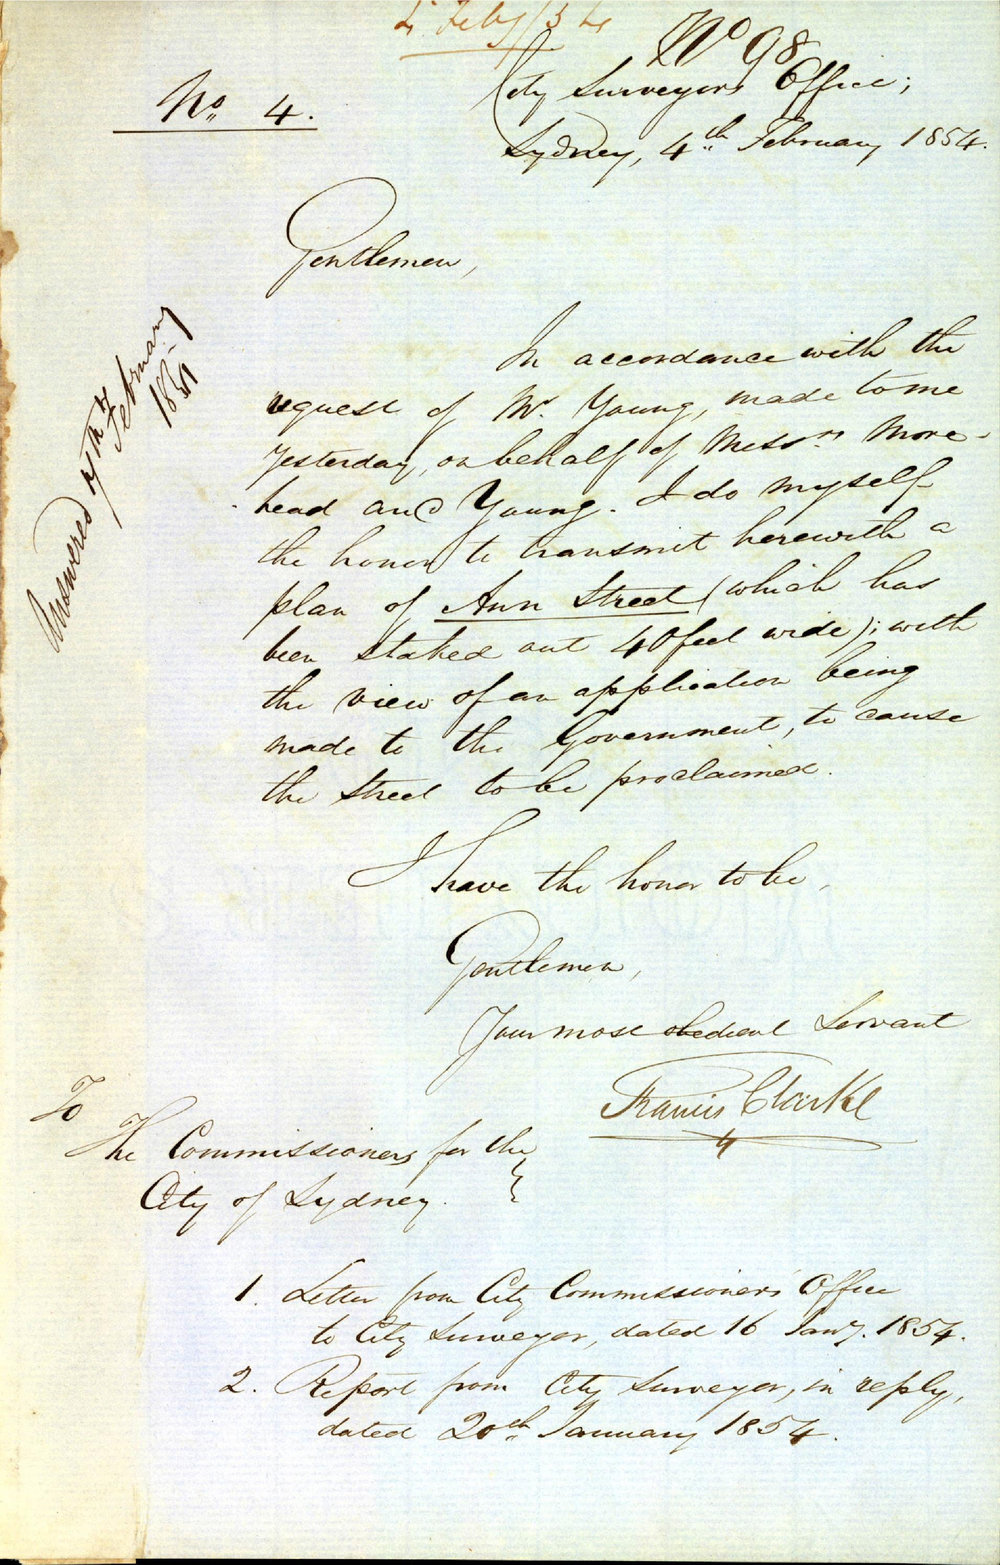 4 Feby/54
No 98
No. 4.
City Surveyors Office;
Sydney, 4th February 1854.
Gentlemen,
In accordance with the
request of Mr. Young, made to me
yesterday, on behalf of Messrs More-
head and Young. I do myself
the honor to transmit herewith a
plan of Ann Street (which has
been staked out 40 feet wide); with
the view of an application being
made to the Government, to cause
the Street to be proclaimed.
I have the honor to be,
Gentlemen,
Your most obedient Servant
Francis Clarke
To
The Commissioners for the
City of Sydney.
1. Letter from City Commissioners' Office
to City Surveyor, dated 16 Jany. 1854.
2. Report from City Surveyor, in reply,
dated 20th January 1854.
Answered 7th
February